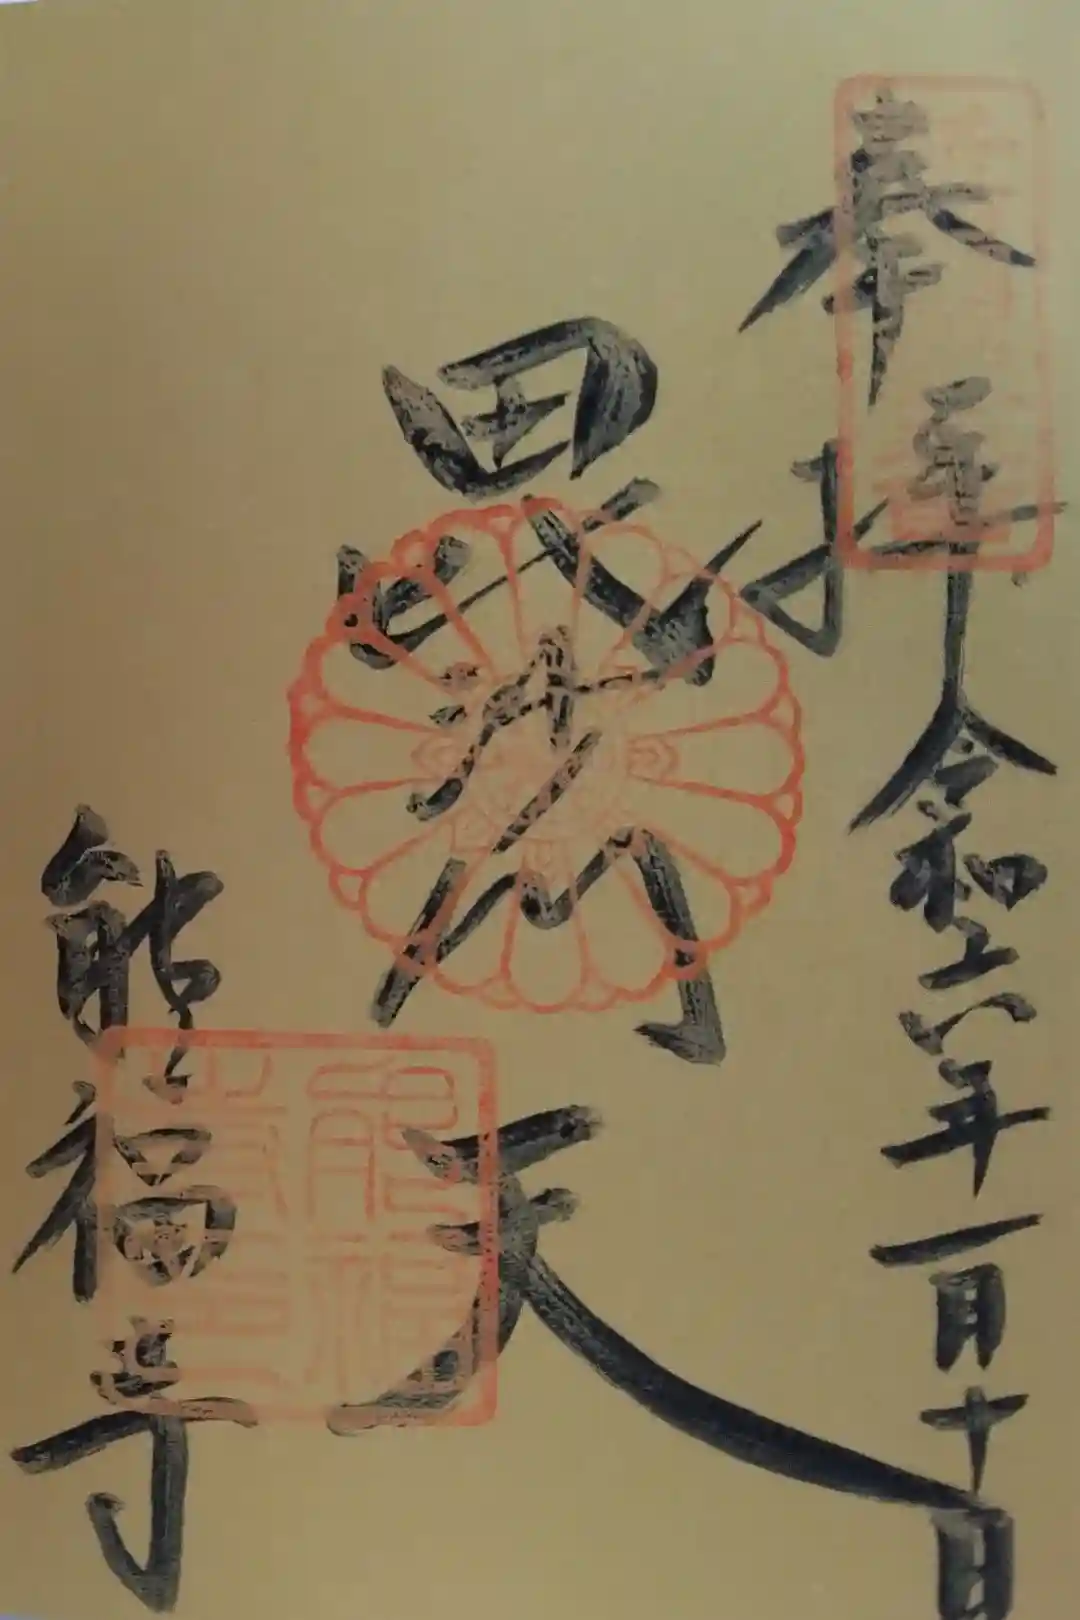 奉拝 令和六年一月十日
毘沙門天
熊福寺